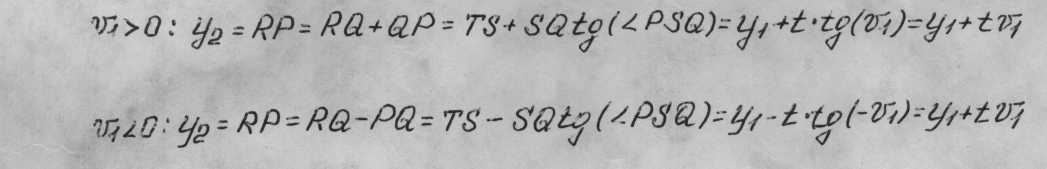 v₁>0: y₂ = RP = RQ + QP = TS + SQ tg(∠PSQ) = y₁ + t·tg(v₁) = y₁ + tv₁
v₁<0: y₂ = RP = RQ - PQ = TS - SQ tg(∠PSQ) = y₁ - t·tg(-v₁) = y₁ + tv₁